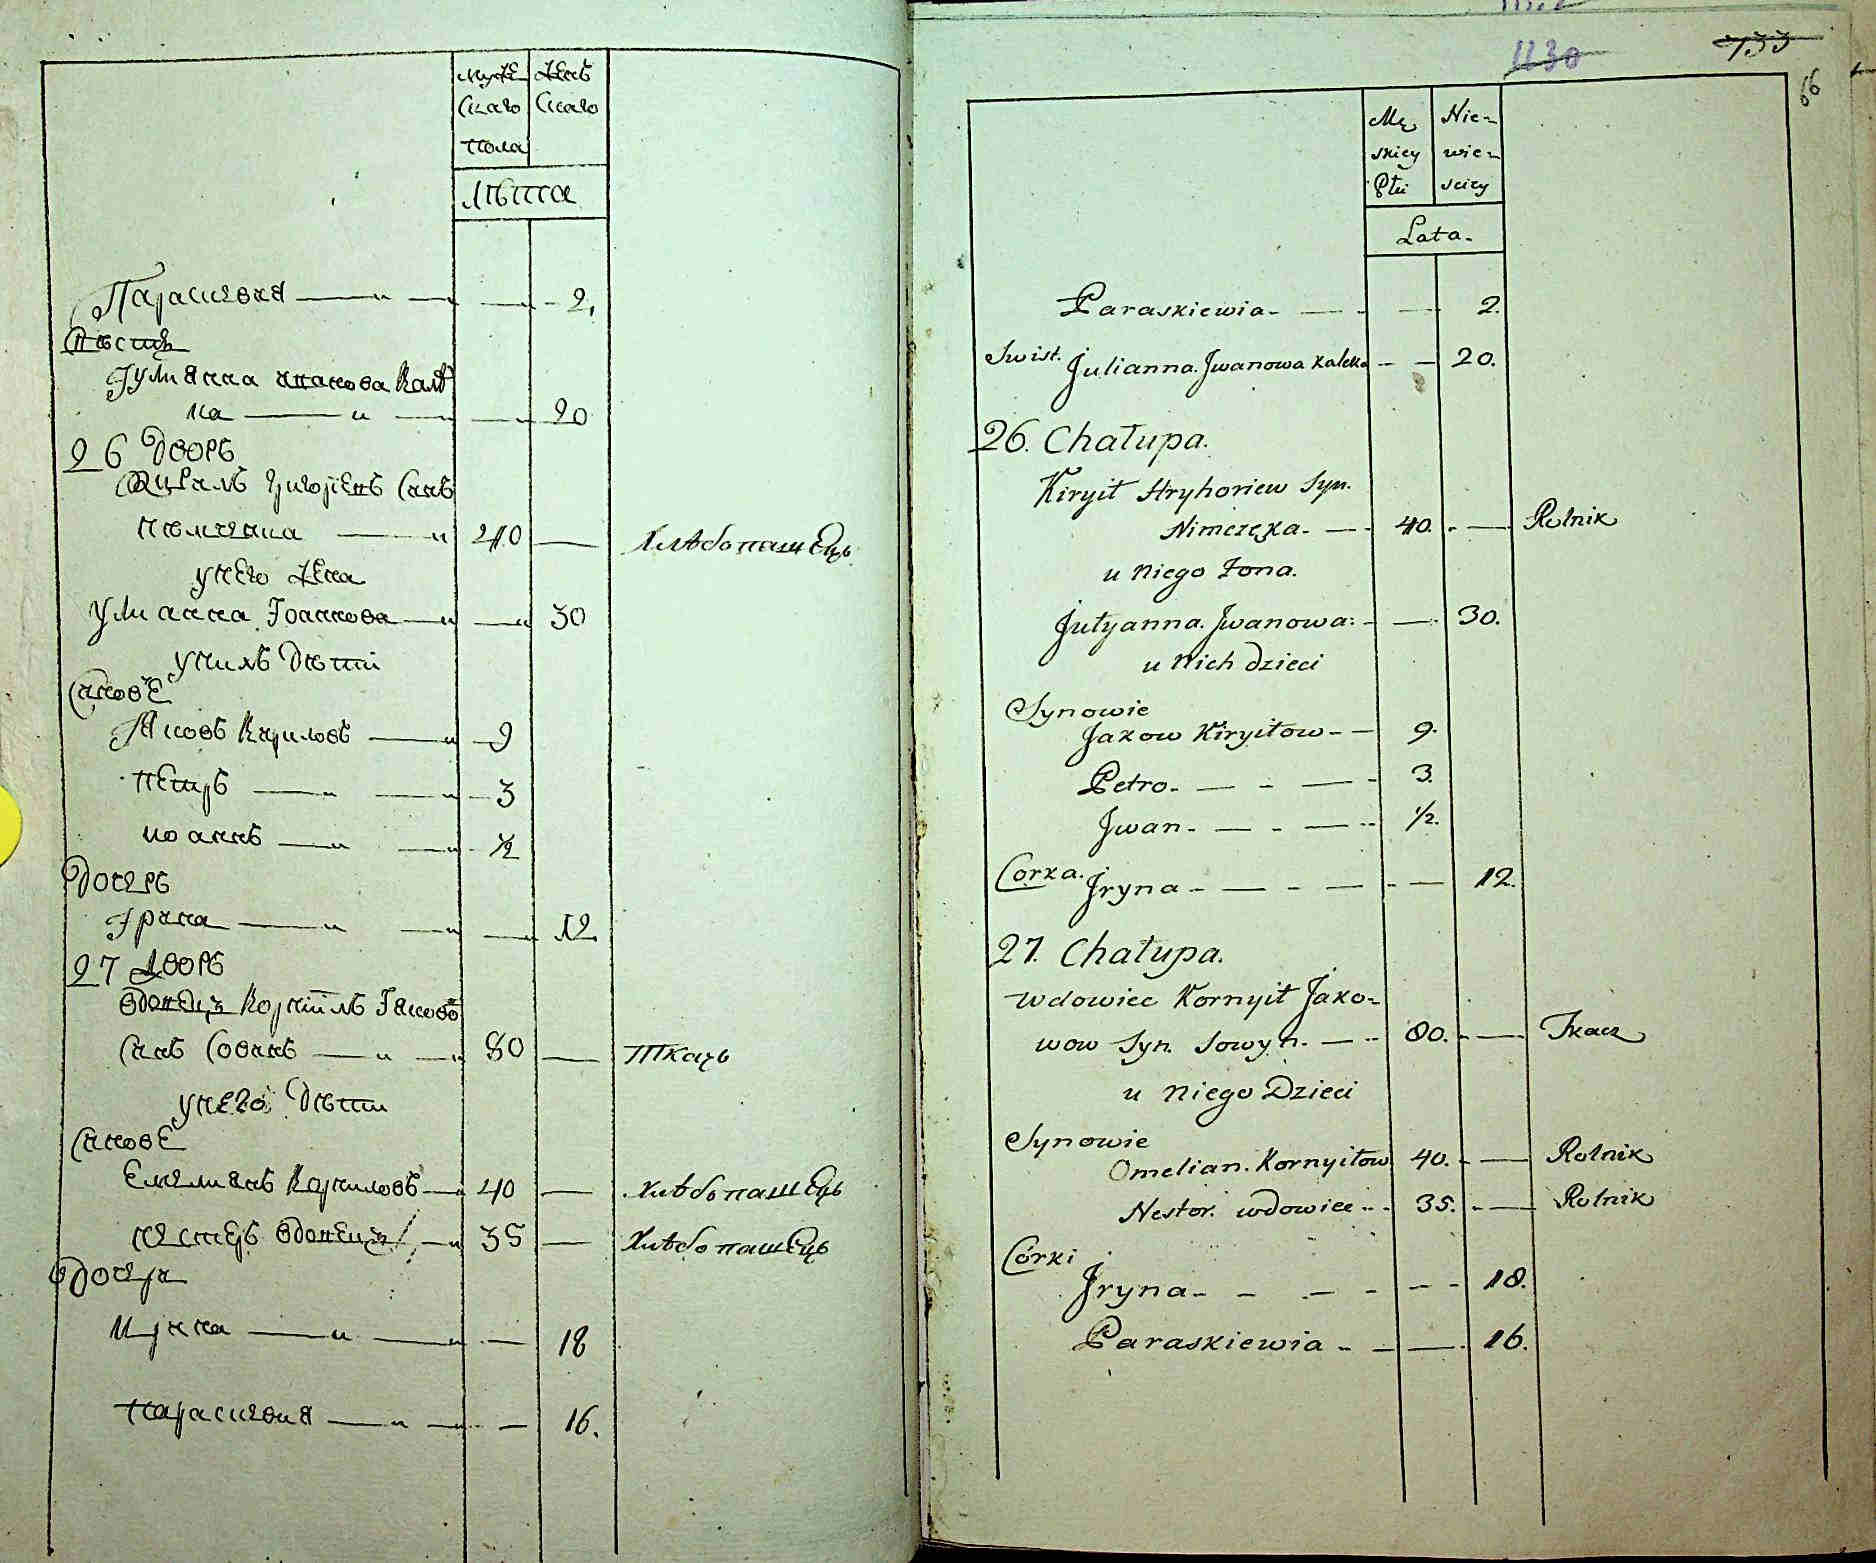 Муже Женъ
скаго скаго
пола
лѣта
Параскевия — 2.
Невѣстка
Іулиянна иванова Калѣ
ка — 20
26 Дворъ
Кирилъ григориевъ сынъ
немчина — 40 — Хлѣбопашецъ
у него жена
улианна Іоаннова — 30
у нихъ дѣти
сынове
Яковъ Кириловъ — 9
петръ — 3
иоаннъ — 1/2
дочерь
Ірина — 12
27 Дворъ
вдовецъ Корнилъ Іаково
сынъ Совинъ — 80 — Ткачъ
у него дѣти
сынове
Емелиянъ Корниловъ — 40 — Хлѣбопашецъ
нестеръ вдовецъ — 35 — Хлѣбопашецъ
дочери
Ирина — 18
параскевия — 16.
1130 733
66
Mę Nie-
skiey wie-
Płci sciey
Lata.
Paraskiewia - — 2.
Swist. Julianna Jwanowa kaleka - — 20.
26. Chałupa.
Kiryił Hryhoriew Syn.
Nimczęka. — 40. — Rolnik
u niego Żona.
Jułyanna Jwanowa: - — 30.
u nich dzieci
Synowie
Jakow Kiryiłow - — 9.
Petro. — 3.
Jwan. — 1/2.
Corka. Jryna - — 12.
27. Chałupa.
Wdowiec Kornyił Jako-
wow Syn. Sowyn. — 80. — Tkacz
u niego Dzieci
Synowie
Omelian. Kornyiłow 40. — Rolnik
Nestor. wdowiec - - 35. — Rolnik
Córki
Jryna - — 18.
Paraskiewia - — 16.